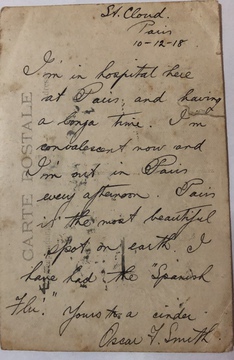 St. Cloud.
Paris
10-12-18.
I'm in hospital here
at Paris, and having
a longa time. I'm
convalescent now and
I'm out in Paris
every afternoon. Paris
is the most beautiful
spot on earth. I
have had the "Spanish
Flu." Yours to a cinder
Oscar T. Smith
CARTE POSTALE